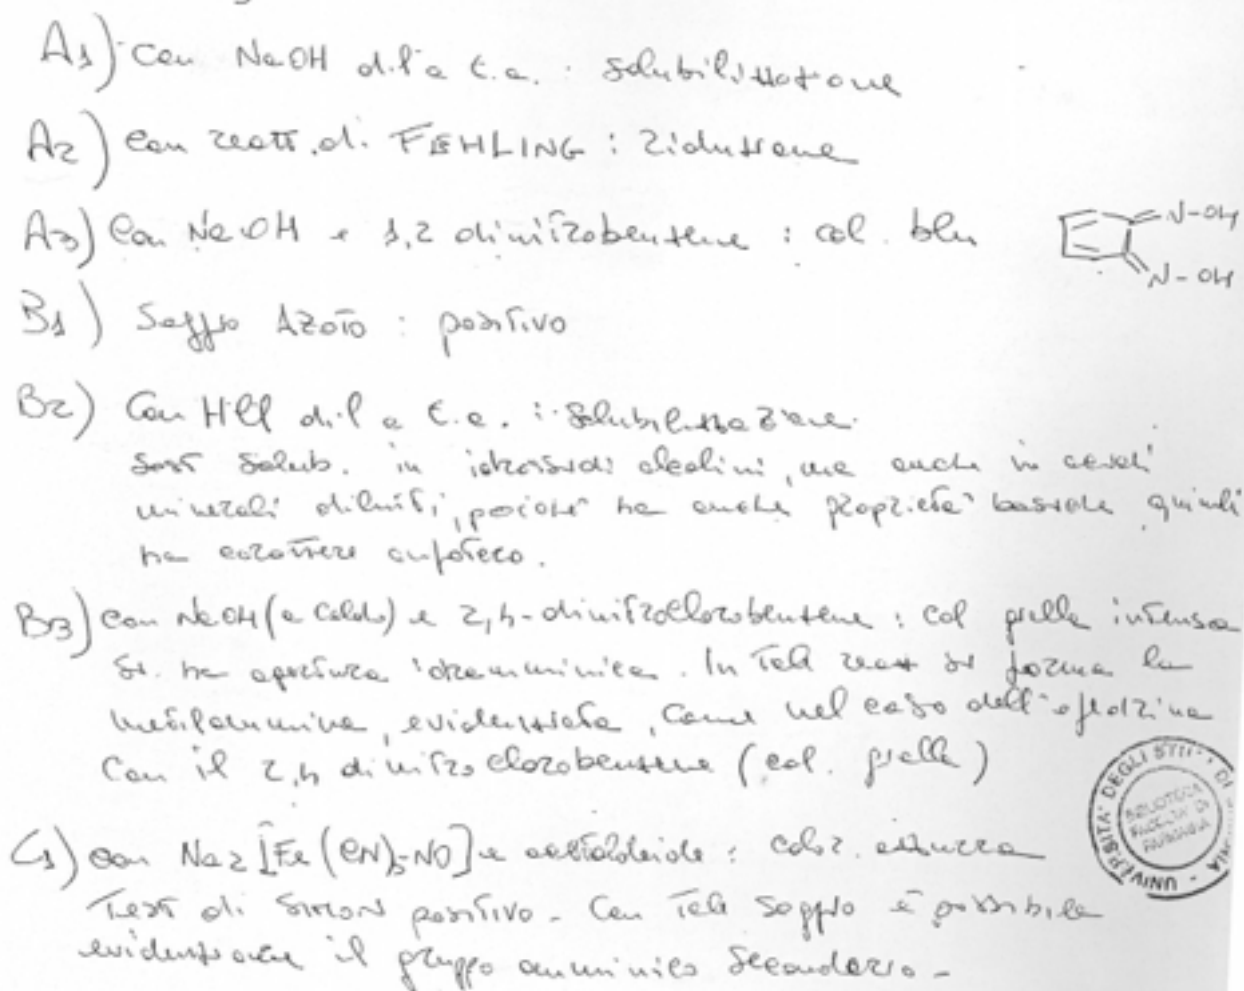 A1) Con NaOH dil a t.a. : solubilizzazione
A2) Con reatt. di FEHLING : riduzione
A3) Con NaOH e 1,2 dinitrobenzene : col. blu
N-OH
N-OH
B1) Saggio AZOTO : positivo
B2) Con HCl dil a t.a. : solubilizzazione.
Sost solub. in idrossidi alcalini, ma anche in acidi
minerali diluiti, poiché ha anche proprietà basiche quindi
ha carattere anfotero.
B3) Con NaOH (a caldo) e 2,4-dinitroclorobenzene : col gialla intensa
Si ha apertura idramminica. In tale reaz si forma la
metilammina, evidenziata, come nel caso dell'efedrina
Con il 2,4 dinitroclorobenzene (col. gialla)
C1) Con Na2[Fe(CN)5NO] e acetaldeide : color. azzurra
Test di Simon positivo - Con tale saggio è possibile
evidenziare il gruppo amminico secondario -
UNIVERSITA' DEGLI STUDI DI
BIBLIOTECA
FACOLTA' DI
FARMACIA